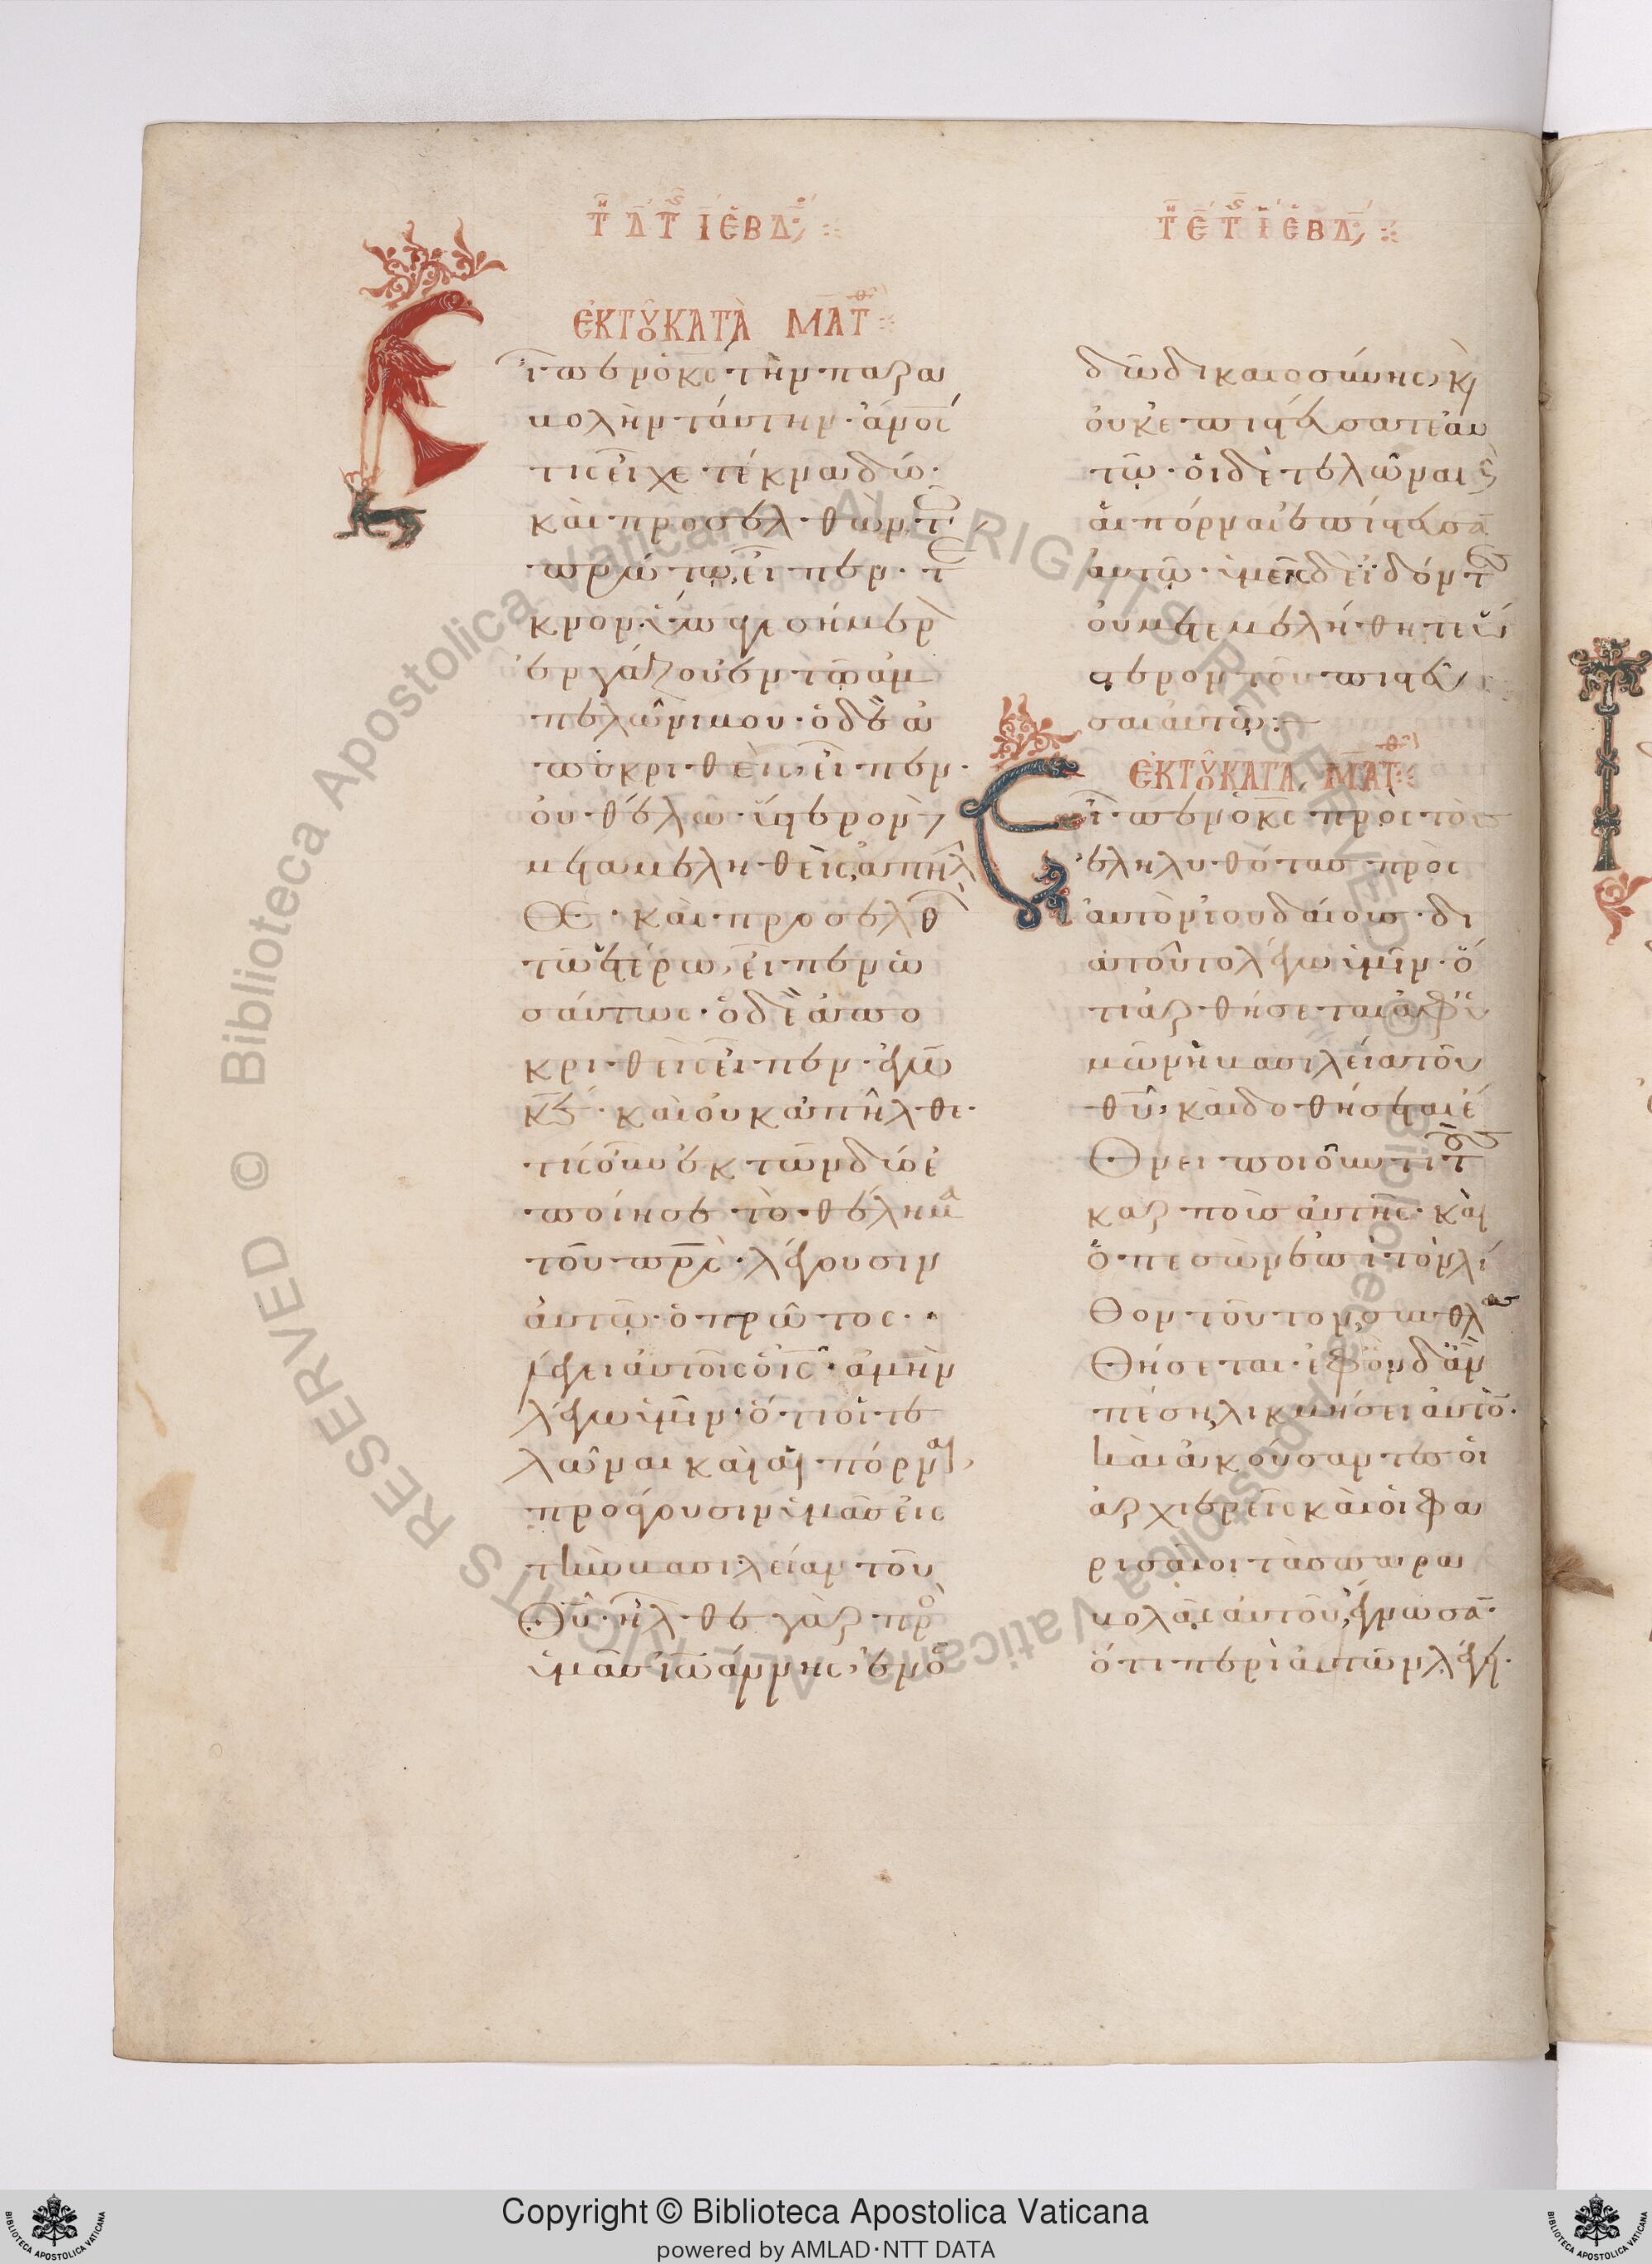 Τῇ Δ̅ Τῆς Ι̅ ΕΒΔ
ἘΚΤΟΥ͂ΚΑΤᾺ ΜΑΤΘ
Εἶπενὁκς̅τὴνπαρα
βολὴνταύτην·ἄνος̅
τιςεἶχετέκναδύο·
καὶπροσελθὼντῷ
πρώτῳ,εἶπεν·τέ
κνον·ὕπαγεσήμερον
ἐργάζουἐντῷἀμ
πελῶνίμου·ὁδὲἀ
ποκριθεὶς,εἶπεν·
οὐθέλω·ὕστερον
μεταμεληθεὶς,ἀπῆλ
θε·καὶπροσελθὼν
τῷἑτέρῳ,εἶπενὡ
σαύτως·ὁδὲἀπο
κριθεὶςεἶπεν·ἐγὼ
κε̅·καὶοὐκἀπῆλθε·
τίςοὖνἐκτῶνδύοἐ
ποίησετὸθέλημα
τοῦπρς̅·λέγουσιν
αὐτῷ·ὁπρῶτος·
λέγειαὐτοῖςὁις̅·ἀμὴν
λέγωὑμῖν·ὅτιοἱτε
λῶναικαὶαἱπόρναι,
προάγουσινὑμᾶςεἰς
τὴνβασιλείαντοῦ
θυ̅·ἦλθεγὰρπρὸς
ὑμᾶςἰωάννης,ἐνὁ
Τῇ Ε̅ Τῆς Ι̅ ΕΒΔ
δῷδικαιοσύνης,καὶ
οὐκἐπιστεύσατεαὐ
τῷ·οἱδὲτελῶναικαὶ
αἱπόρναιἐπίστευσαν
αὐτῷ·ὑμεῖςδὲἰδόντες
οὐμετεμελήθητεὕ
στεροντοῦπιστεῦ
σαιαὐτῷ:
ἘΚΤΟΥ͂ΚΑΤᾺ ΜΑΤΘ
Εἶπενὁκς̅πρὸςτοὺς
ἐληλυθότας πρὸς
αὐτὸνἰουδαίους·δι
ατοῦτολέγωὑμῖν·ὅ
τιἀρθήσεταιἀφὑ
μῶνἡβασιλείατοῦ
θυ̅,καὶδοθήσεταιἔ
θνειποιοῦντιτοὺς
καρποὺςαὐτῆς·καὶ
ὁπεσὼνἐπὶτὸνλί
θοντοῦτον,συνθλα
θήσεται·ἐφὃνδἂν
πέσῃ,λικμήσειαὐτόν·
καὶἀκούσαντεςοἱ
ἀρχιερεῖςκαὶοἱφα
ρισαῖοιτὰςπαρα
βολὰςαὐτοῦ,ἔγνωσαν·
ὅτιπερὶαὐτῶνλέγει·
Copyright © Biblioteca Apostolica Vaticana
powered by AMLAD·NTT DATA
© Biblioteca Apostolica Vaticana ALL RIGHTS RESERVED © Biblioteca Apostolica Vaticana ALL RIGHTS RESERVED
BIBLIOTECA APOSTOLICA VATICANA
BIBLIOTECA APOSTOLICA VATICANA